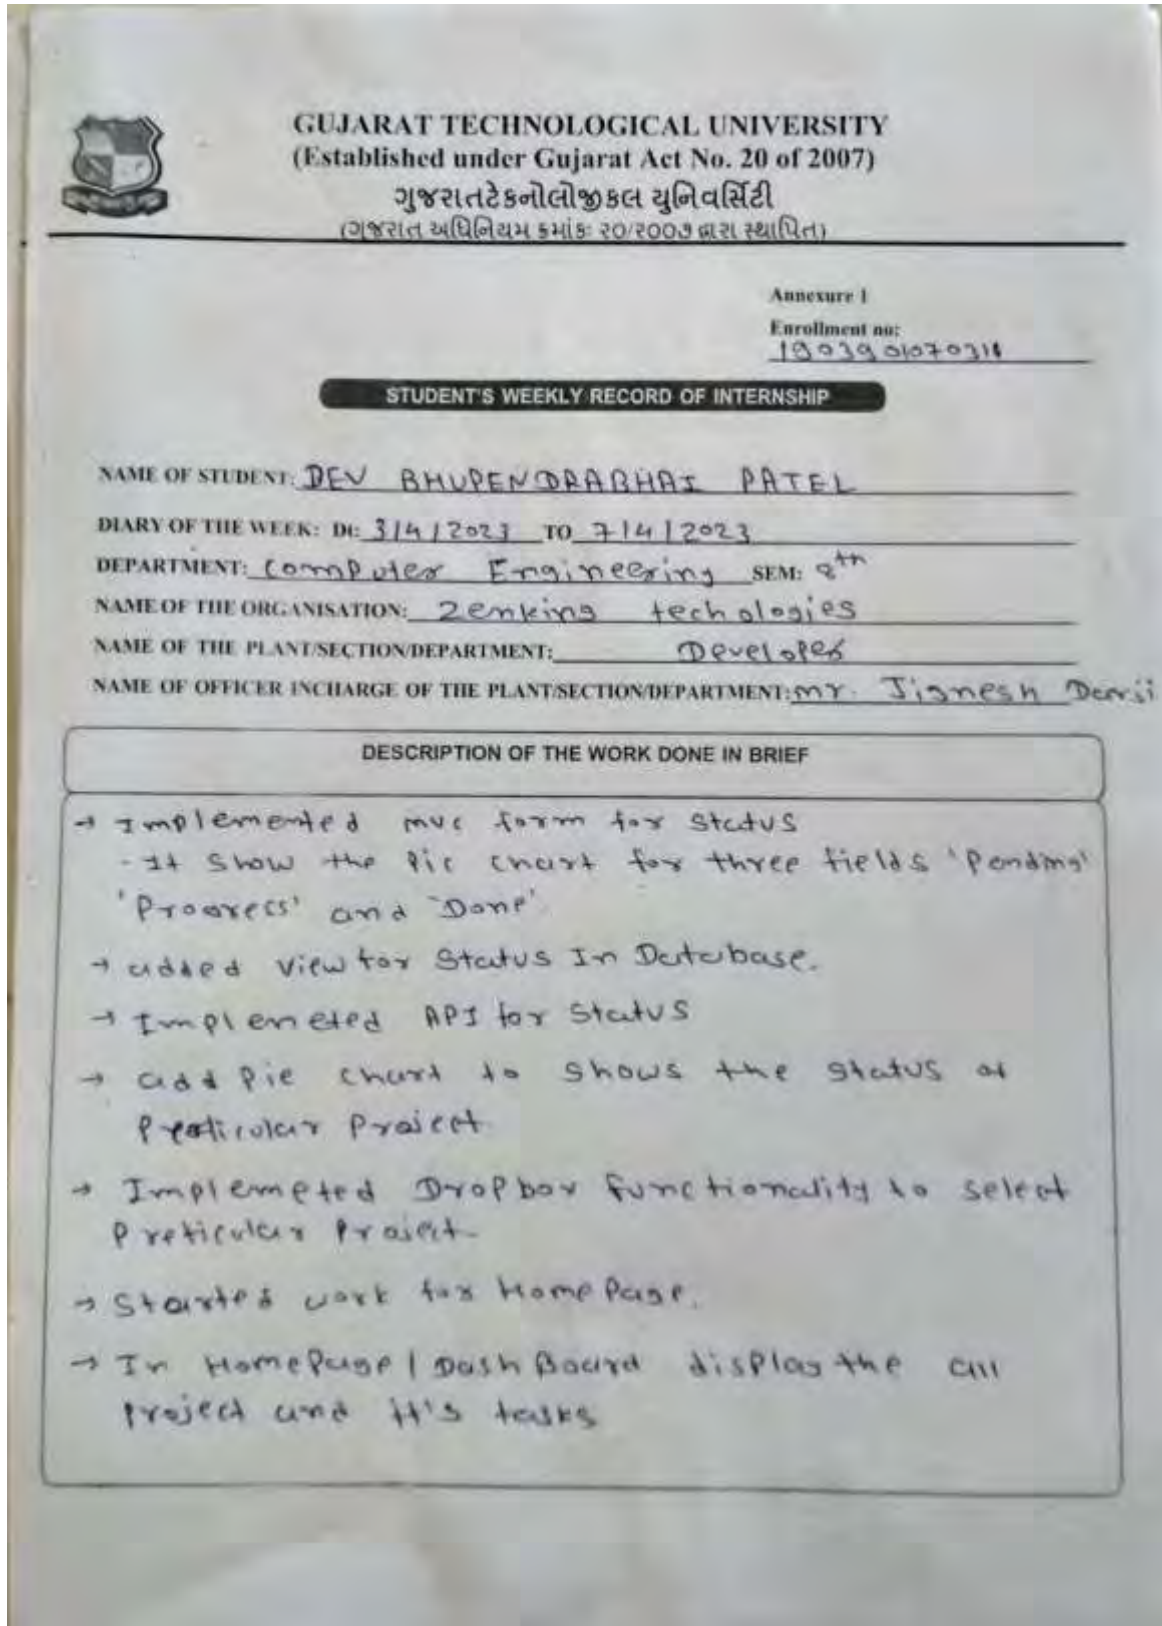 GUJARAT TECHNOLOGICAL UNIVERSITY
(Established under Gujarat Act No. 20 of 2007)
ગુજરાતટેકનોલોજીકલ યુનિવર્સિટી
(ગુજરાત અધિનિયમ ક્રમાંકઃ ૨૦/૨૦૦૭ દ્વારા સ્થાપિત)
Annexure 1
Enrollment no:
STUDENT'S WEEKLY RECORD OF INTERNSHIP
NAME OF STUDENT: DEV BHUPENDRABHAI PATEL
DIARY OF THE WEEK: Dt: 3/4/2023 TO 7/4/2023
DEPARTMENT: Computer Engineering SEM: 8th
NAME OF THE ORGANISATION: Zenking techologies
NAME OF THE PLANT/SECTION/DEPARTMENT: Developer
NAME OF OFFICER INCHARGE OF THE PLANT/SECTION/DEPARTMENT: mr. Jignesh
DESCRIPTION OF THE WORK DONE IN BRIEF
→ Implemented mvc form for status
- It show the Pie chart for three fields 'Pending'
'Progress' and 'Done'
→ added view for Status In Database.
→ Implemeted API for status
→ add Pie chart to shows the status of
Preticular Project
→ Implemeted Dropbox functionality to select
Preticular Project.
→ Started work for HomePage.
→ In HomePage / DashBoard display the all
Project and it's tasks